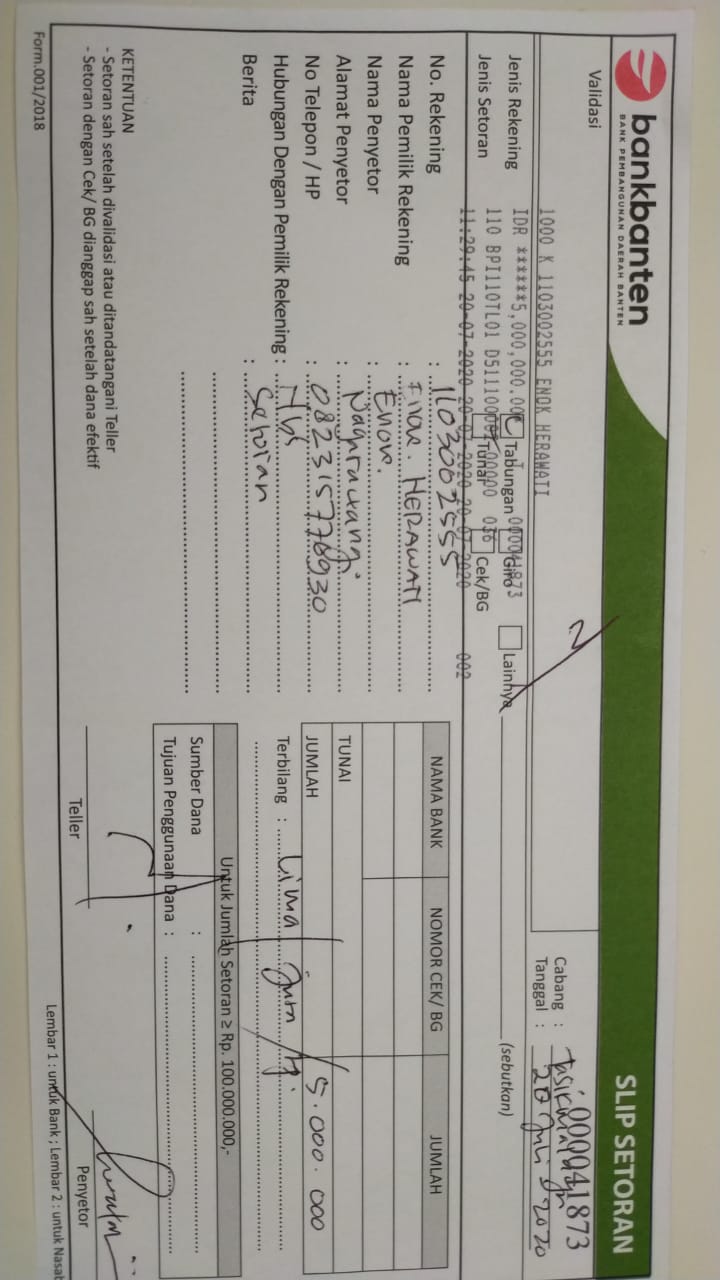 bankbanten
BANK PEMBANGUNAN DAERAH BANTEN
SLIP SETORAN
Validasi
000041873
1000 K 1103002555 ENOK HERAWATI
Cabang : Tasikmalaya
Tanggal : 20 Juli 2020
IDR ******5,000,000.00
000041873
Jenis Rekening Tabungan Giro Lainnya (sebutkan)
110 BPI110TL01 036
Jenis Setoran Tunai Cek/BG
11:29:45 20-07-2020 20-07-2020 20-07-2020 002
No. Rekening : 1103002555
Nama Pemilik Rekening : HERAWATI
Nama Penyetor : Enok.
Alamat Penyetor :
No Telepon / HP : 082315778930
Hubungan Dengan Pemilik Rekening : Nbs
Berita : Setoran
NAMA BANK NOMOR CEK/ BG JUMLAH
TUNAI
JUMLAH 5.000.000
Terbilang : Lima Juta
Untuk Jumlah Setoran ≥ Rp. 100.000.000,-
Sumber Dana :
Tujuan Penggunaan Dana :
KETENTUAN
- Setoran sah setelah divalidasi atau ditandatangani Teller
- Setoran dengan Cek/ BG dianggap sah setelah dana efektif
Teller
Penyetor
Form.001/2018
Lembar 1 : untuk Bank ; Lembar 2 : untuk Nasab